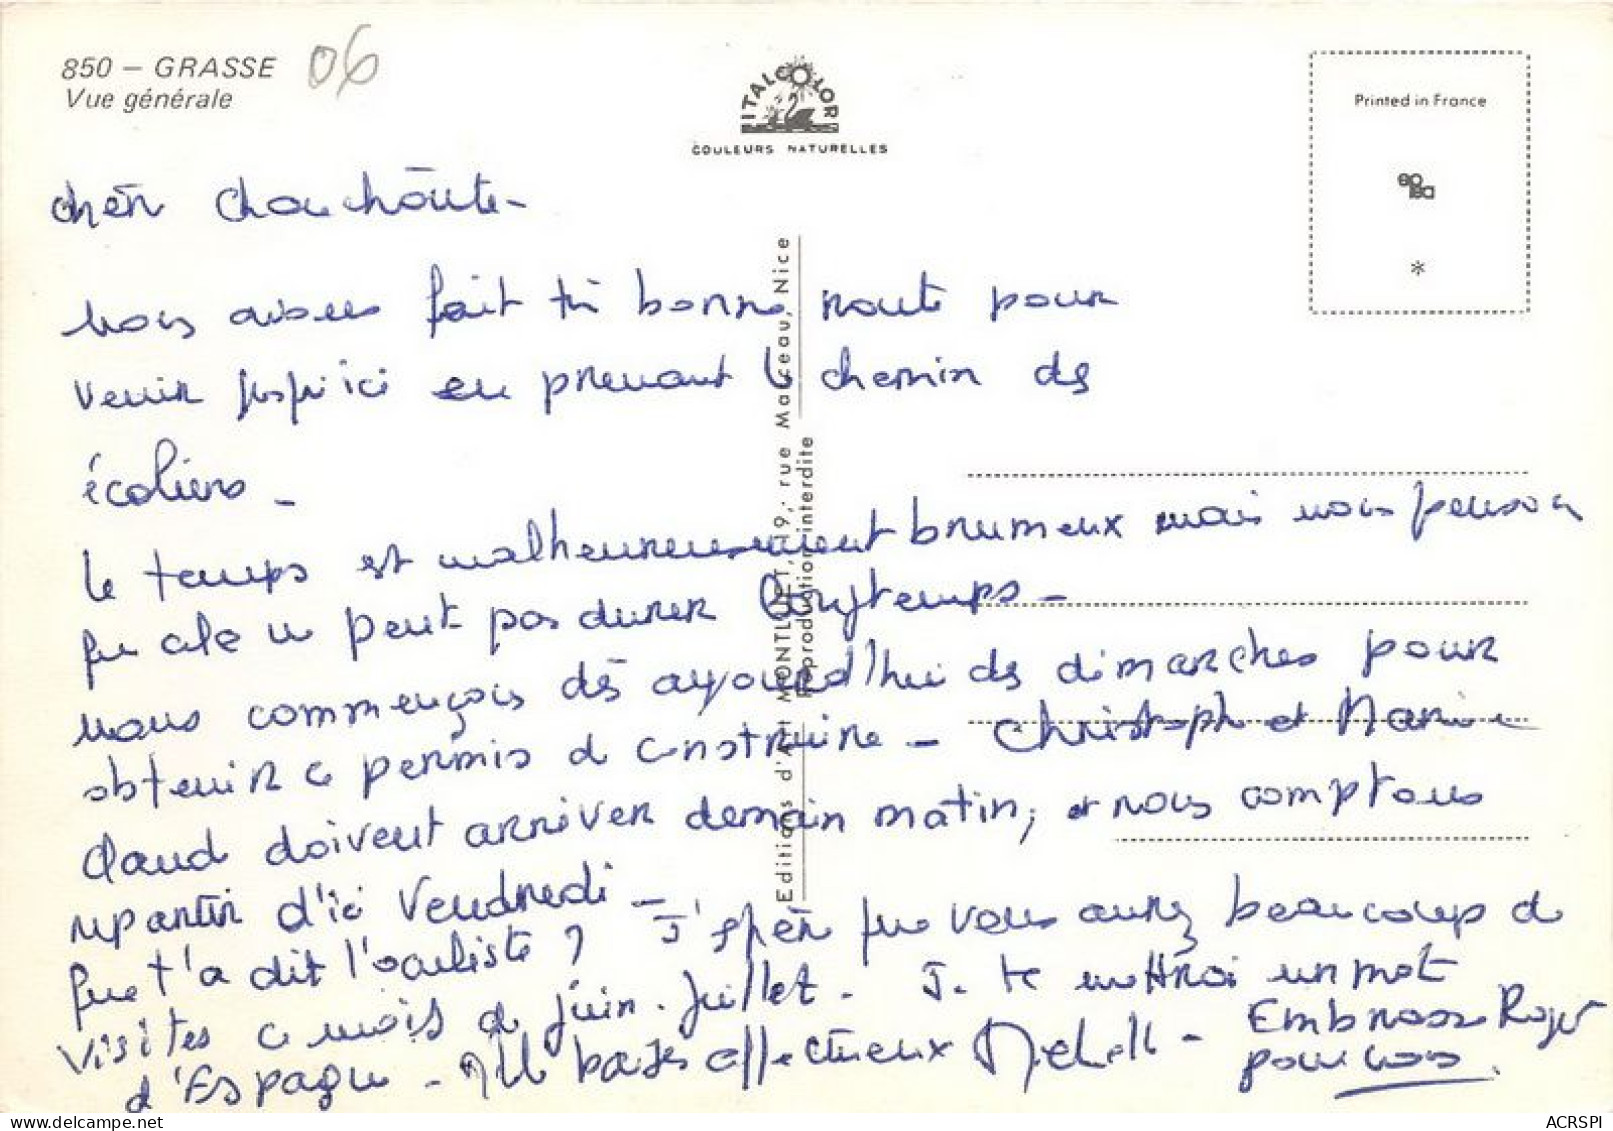 850 – GRASSE 06
Vue générale
ITALCOLOR
COULEURS NATURELLES
Printed in France
*
Editions d'Art MONTLUET, 19, rue Marceau, Nice
Reproduction interdite
chère Chouchoute -
Nous avons fait très bonne route pour
venir jusqu'ici en prenant le chemin des
écoliers -
le temps est malheureusement brumeux mais nous pensons
que cela ne peut pas durer longtemps -
nous commençons dès aujourd'hui des démarches pour
obtenir le permis de construire - Christophe et Marie
Claude doivent arriver demain matin, et nous comptons
repartir d'ici Vendredi -
que t'a dit l'oculiste ? J'espère que vous aurez beaucoup de
visites ce mois de juin-juillet. Je te mettrai un mot
d'Espagne - Mille baisers affectueux Michelle - Embrasse Roger
pour nous.
ACRSPI